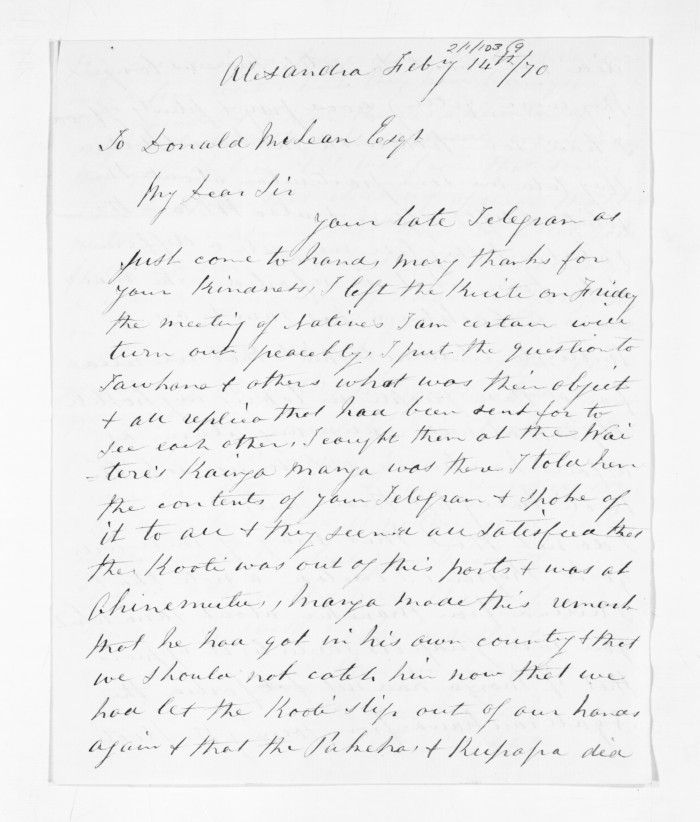 2/1/103/9
Alexandra Feby 14th/70
To Donald McLean Esqr
My Dear Sir
your late Telegram as
just come to hand, many thanks for
your Kindness, I left the Kuiti on Friday
the meeting of Natives I am certain will
turn out peacebly, I put the question to
Tawhana & others what was their object
& all replied that had been sent for to
see each other, I caught them at the Wai
=tere's Kainga Manga was there I told him
the contents of your Telegram & spoke of
it to all & they seem'd all satisfied that
the Kooti was out of this parts & was at
Ohinemutu, Manga made this remark
that he had got in his own county & that
we should not catch him now that we
had let the Kooti slip out of our hands
again & that the Pakeha & Kupapa did